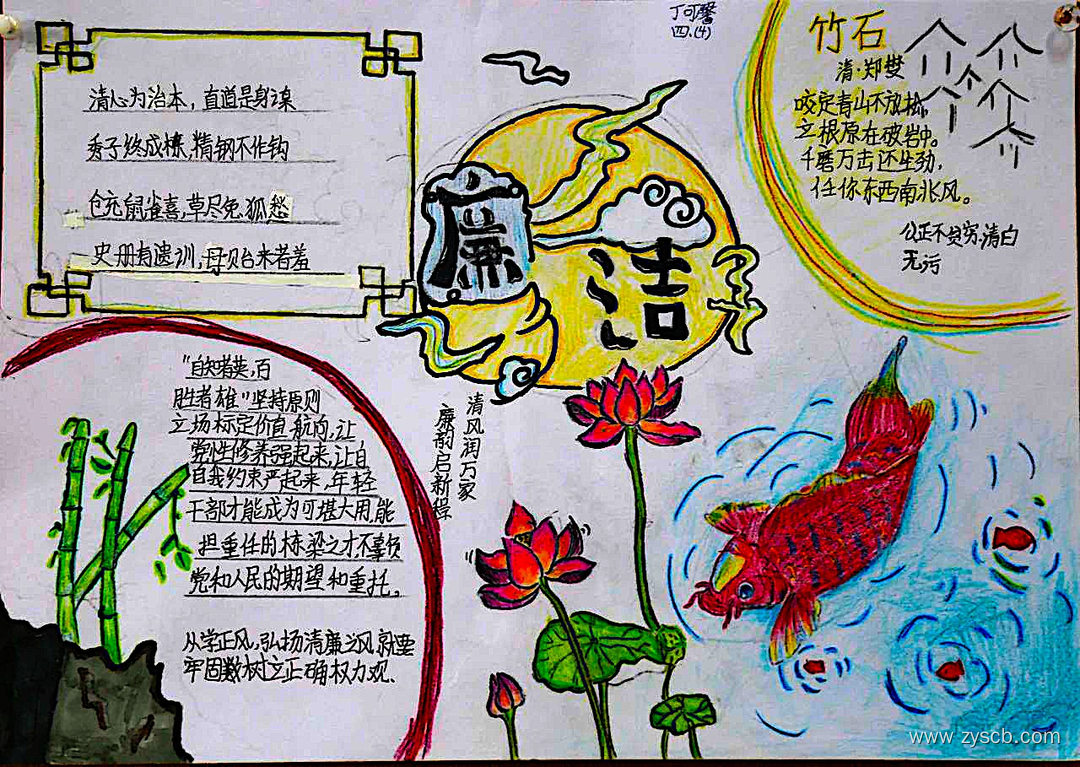 丁可馨
四.(4)
清心为治本，直道是身谋
秀子终成栋，精钢不作钩
仓充鼠雀喜，草尽兔狐愁
史册有遗训，毋贻来者羞
廉
洁
竹石
清·郑燮
咬定青山不放松，
立根原在破岩中。
千磨万击还坚劲，
任你东西南北风。
公正不贫穷，清白
无污
清风润万家
廉韵启新程
"自知者英，百
胜者雄"坚持原则
立场标定价值航向，让
党性修养强起来，让自
自我约束严起来，年轻
干部才能成为可堪大用，能
担重任的栋梁之才不辜负
党和人民的期望和重托。
从学正风，弘扬清廉之风就要
牢固数树立正确权力观、
www.zyscb.com